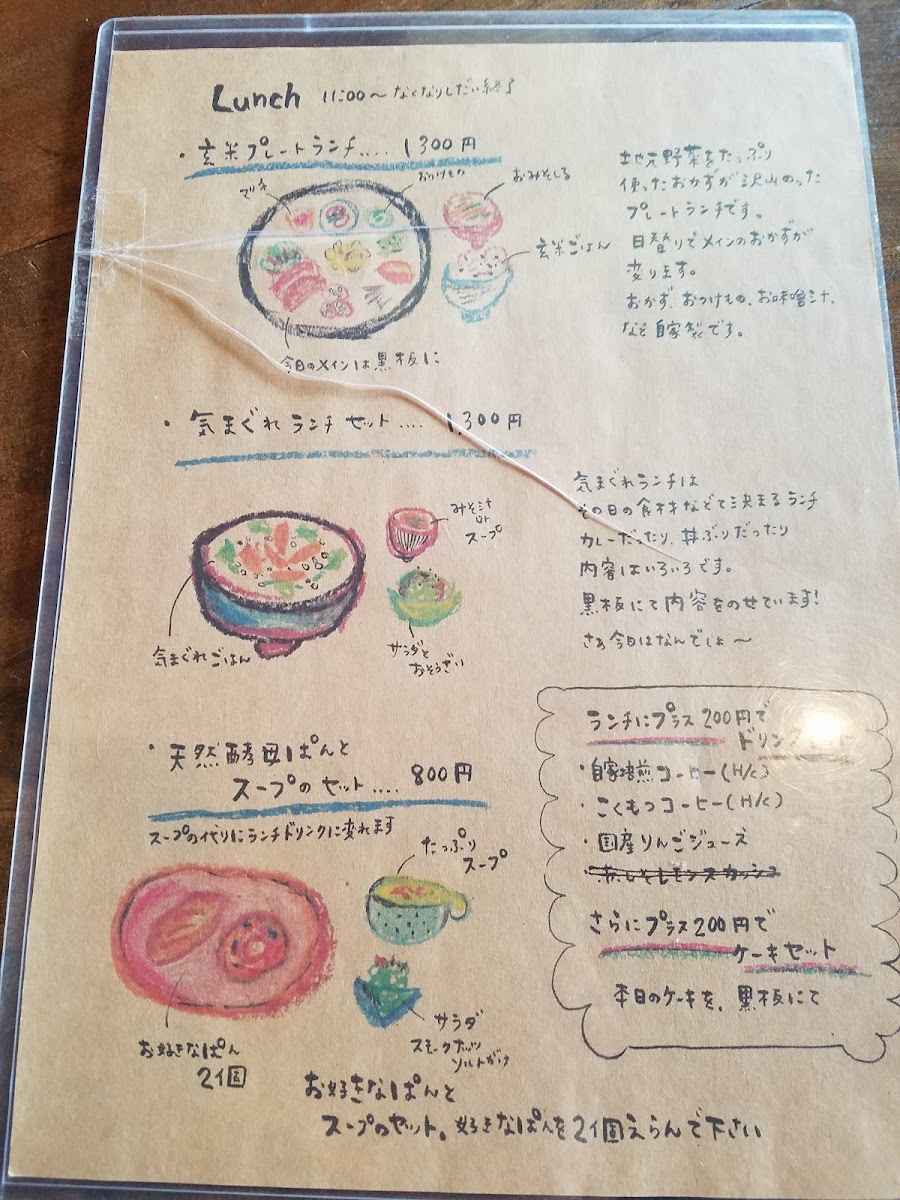 Lunch 11:00〜なくなりしだい終了
・玄米プレートランチ.... 1300円
マリネ
おつけもの
おみそしる
玄米ごはん
今日のメインは黒板に
地元野菜をたっぷり
使ったおかずが沢山のった
プレートランチです。
日替りでメインのおかずが
変ります。
おかず、おつけもの、お味噌汁、
など自家製です。
・気まぐれランチセット.... 1,300円
みそ汁
or
スープ
気まぐれごはん
サラダと
おそうざい
気まぐれランチは
その日の食材などで決まるランチ
カレーだったり、丼ぶりだったり
内容はいろいろです。
黒板にて内容をのせています!
さぁ今日はなんでしょ〜
・天然酵母ぱんと
スープのセット.... 800円
スープの代りにランチドリンクに変れます
たっぷり
スープ
サラダ
スモークナッツ
ソルトがけ
お好きなぱん
2個
お好きなぱんと
スープのセット。好きなぱんを2個えらんで下さい
ランチにプラス200円で
ドリンクセット
・自家焙煎コーヒー(H/c)
・こくもつコーヒー(H/c)
・国産りんごジュース
・赤しそレモンスカッシュ
さらにプラス200円で
ケーキセット
本日のケーキを、黒板にて